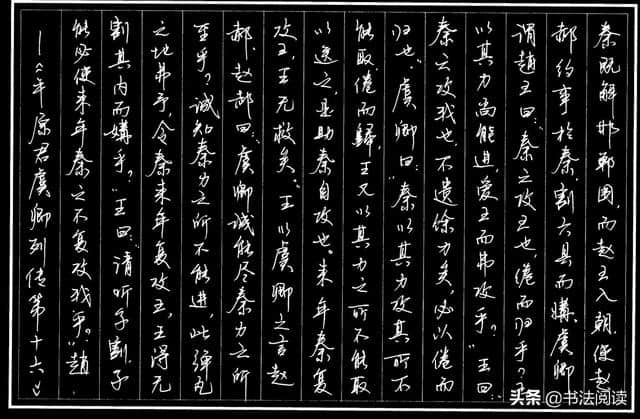 秦既解邯郸围，而赵王入朝，使赵
郝约事于秦，割六县而媾。虞卿
谓赵王曰：“秦之攻王也，倦而归乎？王
以其力尚能进，爱王而弗攻乎？”王曰：
秦之攻我也，不遗余力矣，必以倦而
归也。”虞卿曰：“秦以其力攻其所不
能取，倦而歸，王又以其力之所不能取
以送之，是助秦自攻也。来年秦复
攻王，王无救矣。”王以虞卿之言赵
郝。赵郝曰：“虞卿诚能尽秦力之所
至乎？诚知秦力之所不能进，此弹丸
之地弗予，令秦来年复攻王，王得无
割其内而媾乎？”王曰：“请听子割，子
能必使来年秦之不复攻我乎？”赵
—《平原君虞卿列传第十六》
头条@书法阅读